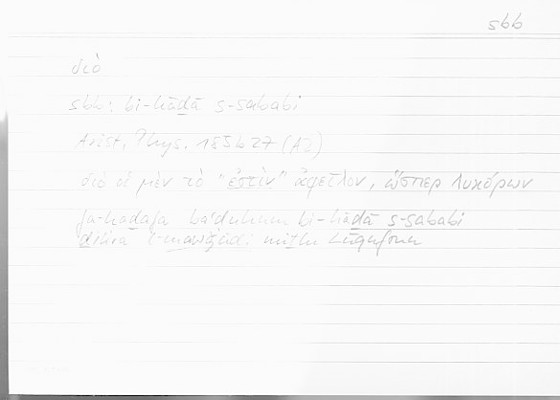 sbb
διὸ
sbb: bi-hāḏā s-sababi
Arist. Phys. 185b27 (A2)
διὸ οἱ μὲν τὸ "ἐστὶν" ἀφεῖλον, ὥσπερ Λυκόφρων
fa-ḥaḏafa baʿḍuhum bi-hāḏā s-sababi
ḏikra l-mawǧūdi miṯlu Lūqufrūn